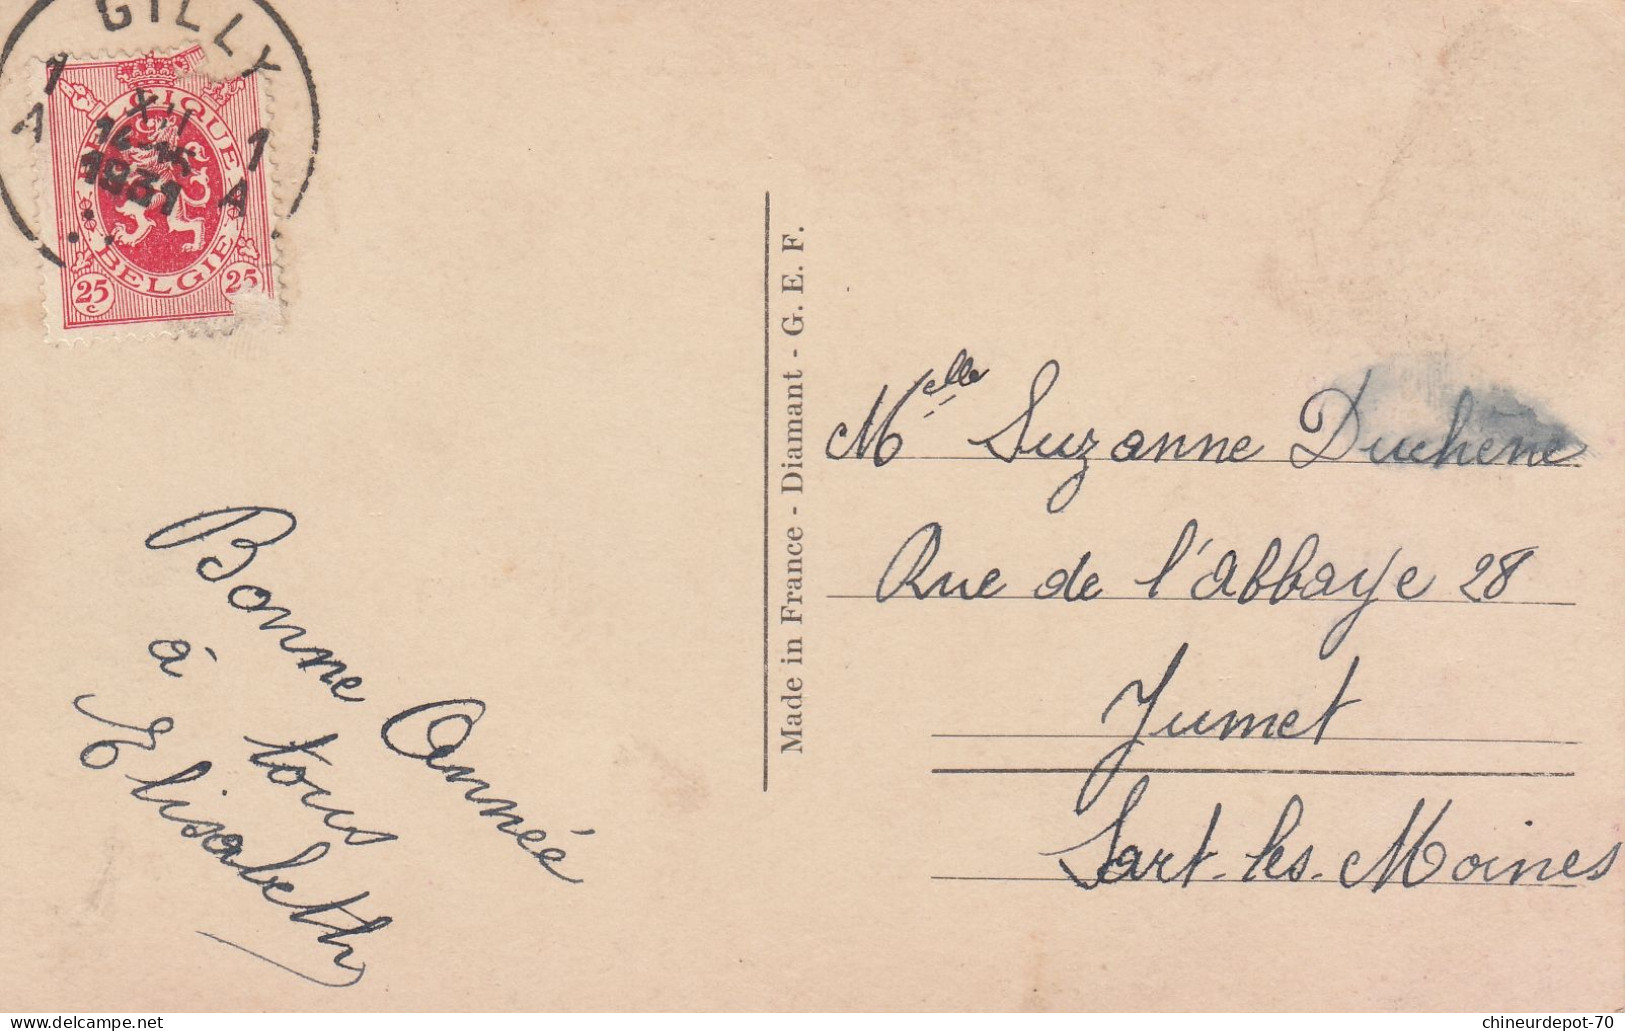 GILLY
1 1
A A
XII
14-15
1931
BELGIQUE
BELGIE
25c 25
Bonne Année
à tous
Elisabeth
Made in France - Diamant - G. E. F.
Melle Suzanne Duchêne
Rue de l'abbaye 28
Jumet
Sart-les-Moines
chineurdepot-70